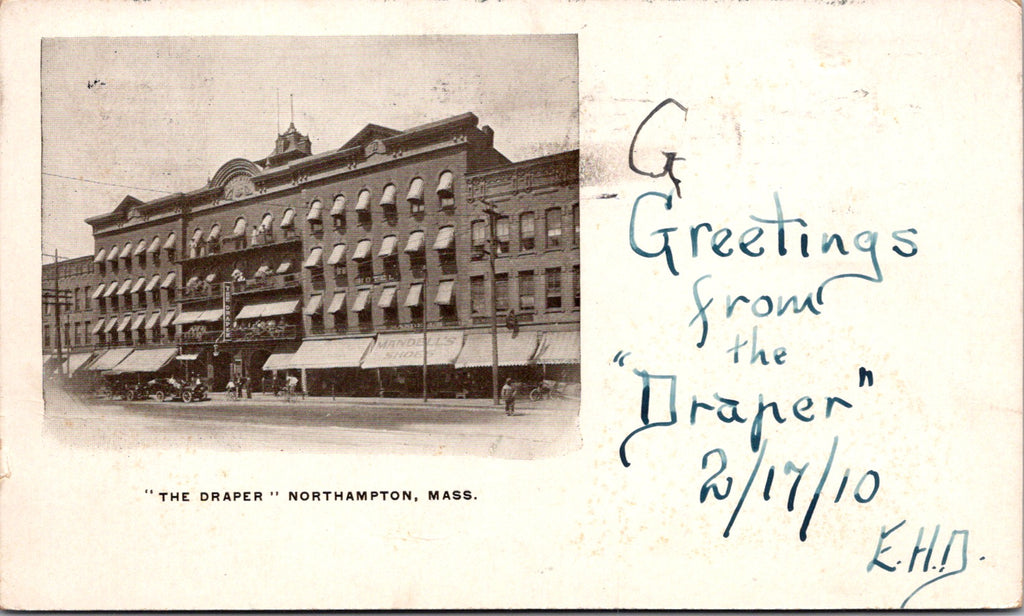 THE DRAPER
HOTEL
MANDELL'S
SHOES
"THE DRAPER" NORTHAMPTON, MASS.
G
Greetings
from
the
"Draper"
2/17/10
E.H.D.